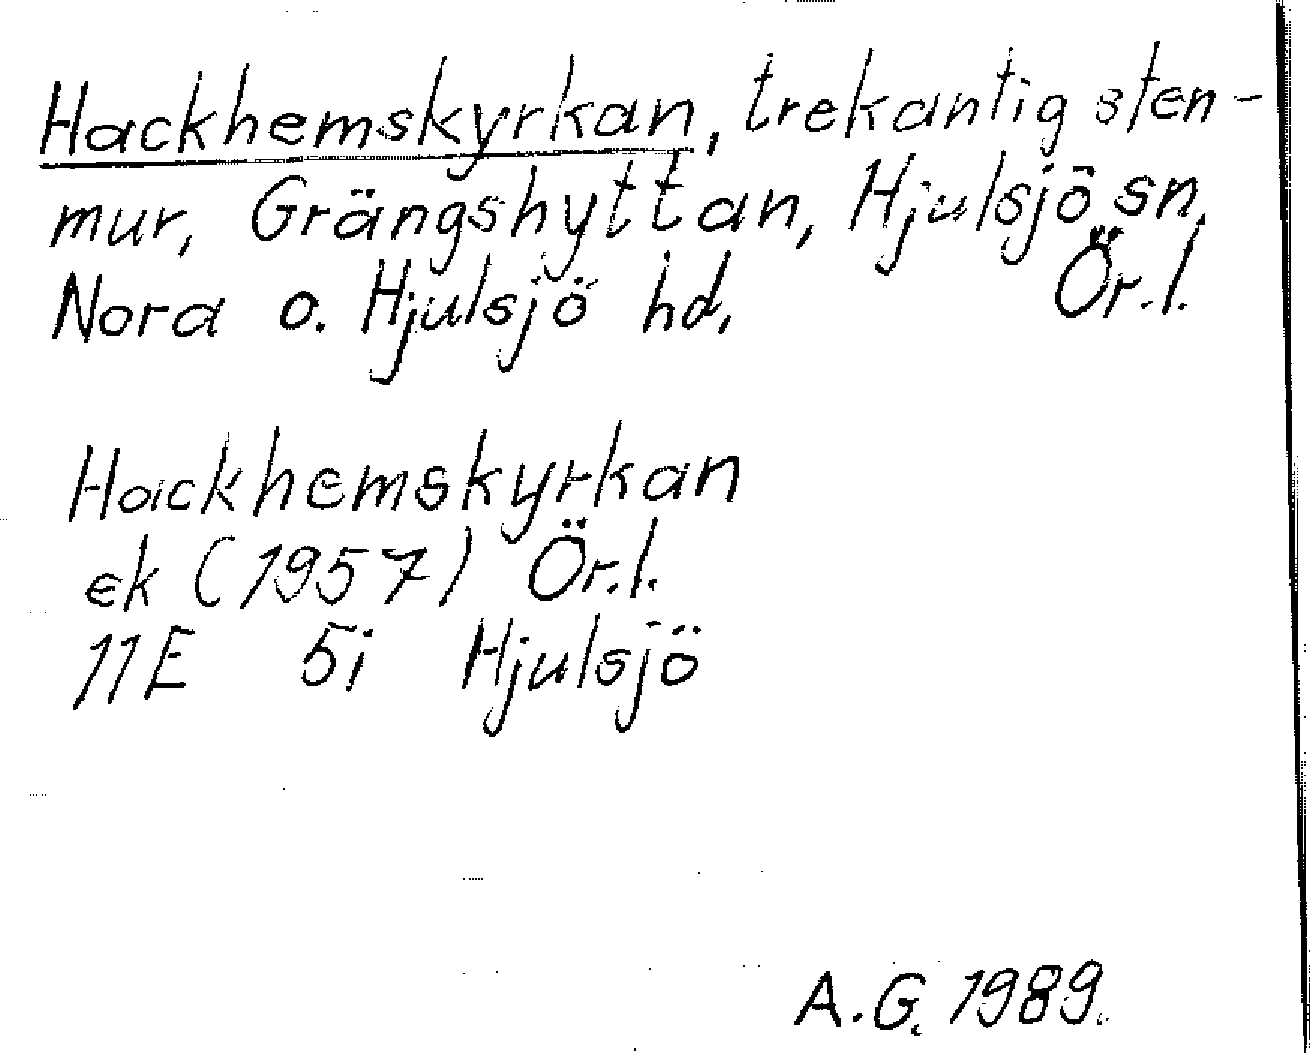 Hackhemskyrkan, trekantig sten-
mur, Grängshyttan, Hjulsjö sn,
Nora o. Hjulsjö hd, Ör.l.
Hackhemskyrkan
ek (1957) Ör.l.
11E 5i Hjulsjö
A.G. 1989.